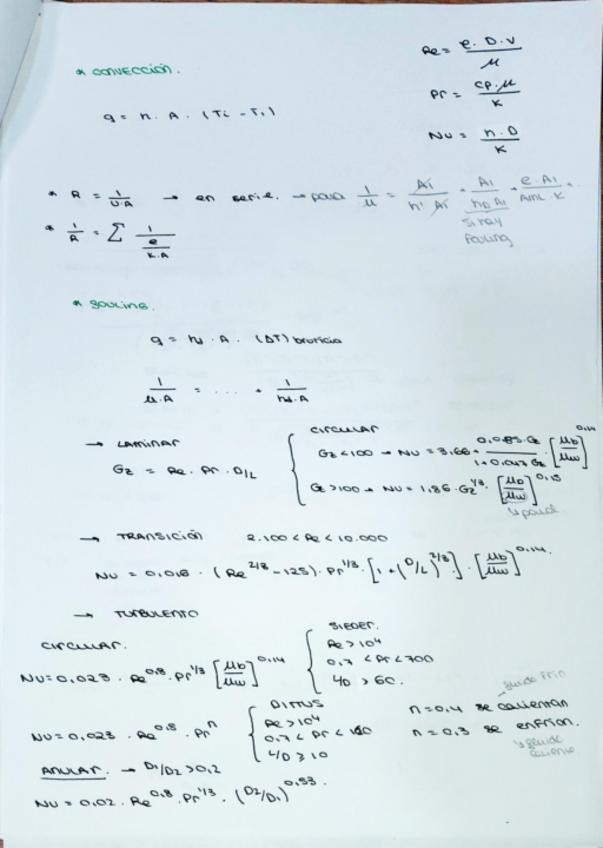 * CONVECCIÓN.
q = h. A. (Ti - T1)
Re = ρ. D. V / μ
Pr = CP. μ / K
NU = h. D / K
* R = 1 / U A → en serie. → para 1/μ = Ai / h' Ai + A1 / hD A1 + e. A1 / AmL. K + ..
si hay
fouling
* 1/R = Σ 1 / (e / K. A)
* FOULING.
q = hd. A. (ΔT)
1 / μ. A = .... + 1 / hd. A
→ LAMINAR
Gz = Re. Pr. D/L
CIRCULAR
Gz < 100 → NU = 3,66 + 0,085. Gz / 1 + 0,047 Gz [μb / μw]^0,14
Gz > 100 → NU = 1,86. Gz^1/3. [μb / μw]^0,15
↳ pared
→ TRANSICIÓN 2.100 < Re < 10.000
NU = 0,016. (Re^2/3 - 125). Pr^1/3. [1 + (D/L)^2/3]. [μb / μw]^0,14.
→ TURBULENTO
CIRCULAR.
NU = 0,023. Re^0,8. Pr^1/3 [μb / μw]^0,14
SIEDER.
Re > 10^4
0,7 < Pr < 700
L/D > 60.
NU = 0,023. Re^0,8. Pr^n
DITTUS
Re > 10^4
0,7 < Pr < 160
L/D ≥ 10
fluido frio
n = 0,4 se calientan
n = 0,3 se enfrían.
↳ fluido
caliente
ANULAR. → D1/D2 > 0,2
NU = 0,02. Re^0,8. Pr^1/3. (D2/D1)^0,53.